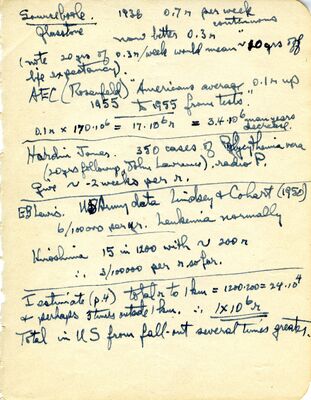 Sourcebook. 1936 0.7 r per week
Glasstone continuous
now better 0.3 r "
(note 20 yrs of 0.3 r/week would mean ~10 yrs off
life expectancy)
AEC (Rosenfeld) "Americans average 0.1 r up
1955 to 1955 from tests."
0.1 r × 170·10⁶ = 17·10⁶ r = 3.4·10⁶ man years
decrease.
Hardin Jones. 350 cases of Polycythemia vera
(20 yrs followup, John Lawrence), radio P.
Gives ~ -2 weeks per r.
EB Lewis. US Army data Lindsey & Cohart (1950)
6/100000 per yr. Leukemia normally
Hiroshima 15 in 1200 with ~ 200 r
∴ 3/100000 per r so far.
I estimate (p.4) total r to 1 km = 1200·200 = 24·10⁴
& perhaps 3 times outside 1 km. ∴ 1×10⁶ r
Total in US from fall-out several times greater.